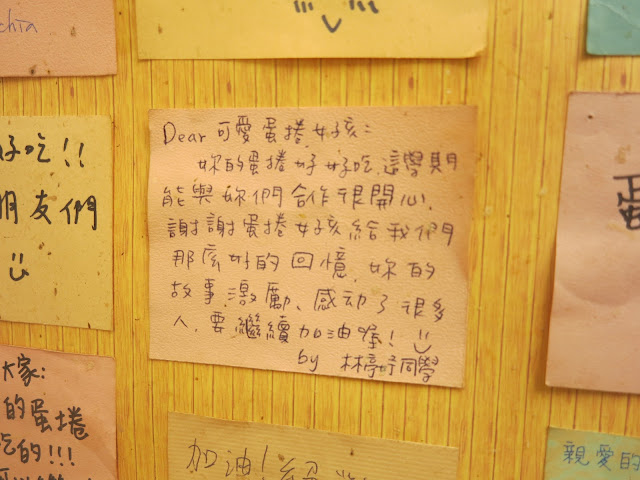 chia
好吃!!
朋友們
Dear 可愛蛋捲女孩:
妳的蛋捲好好吃,這學期
能與妳們合作很開心.
謝謝蛋捲女孩給我們
那麼好的回憶,妳的
故事激勵、感动了很多
人,要繼續加油喔!
by 林亭妤同學
蛋
大家:
的蛋捲
吃的!!!
加油!
親愛的